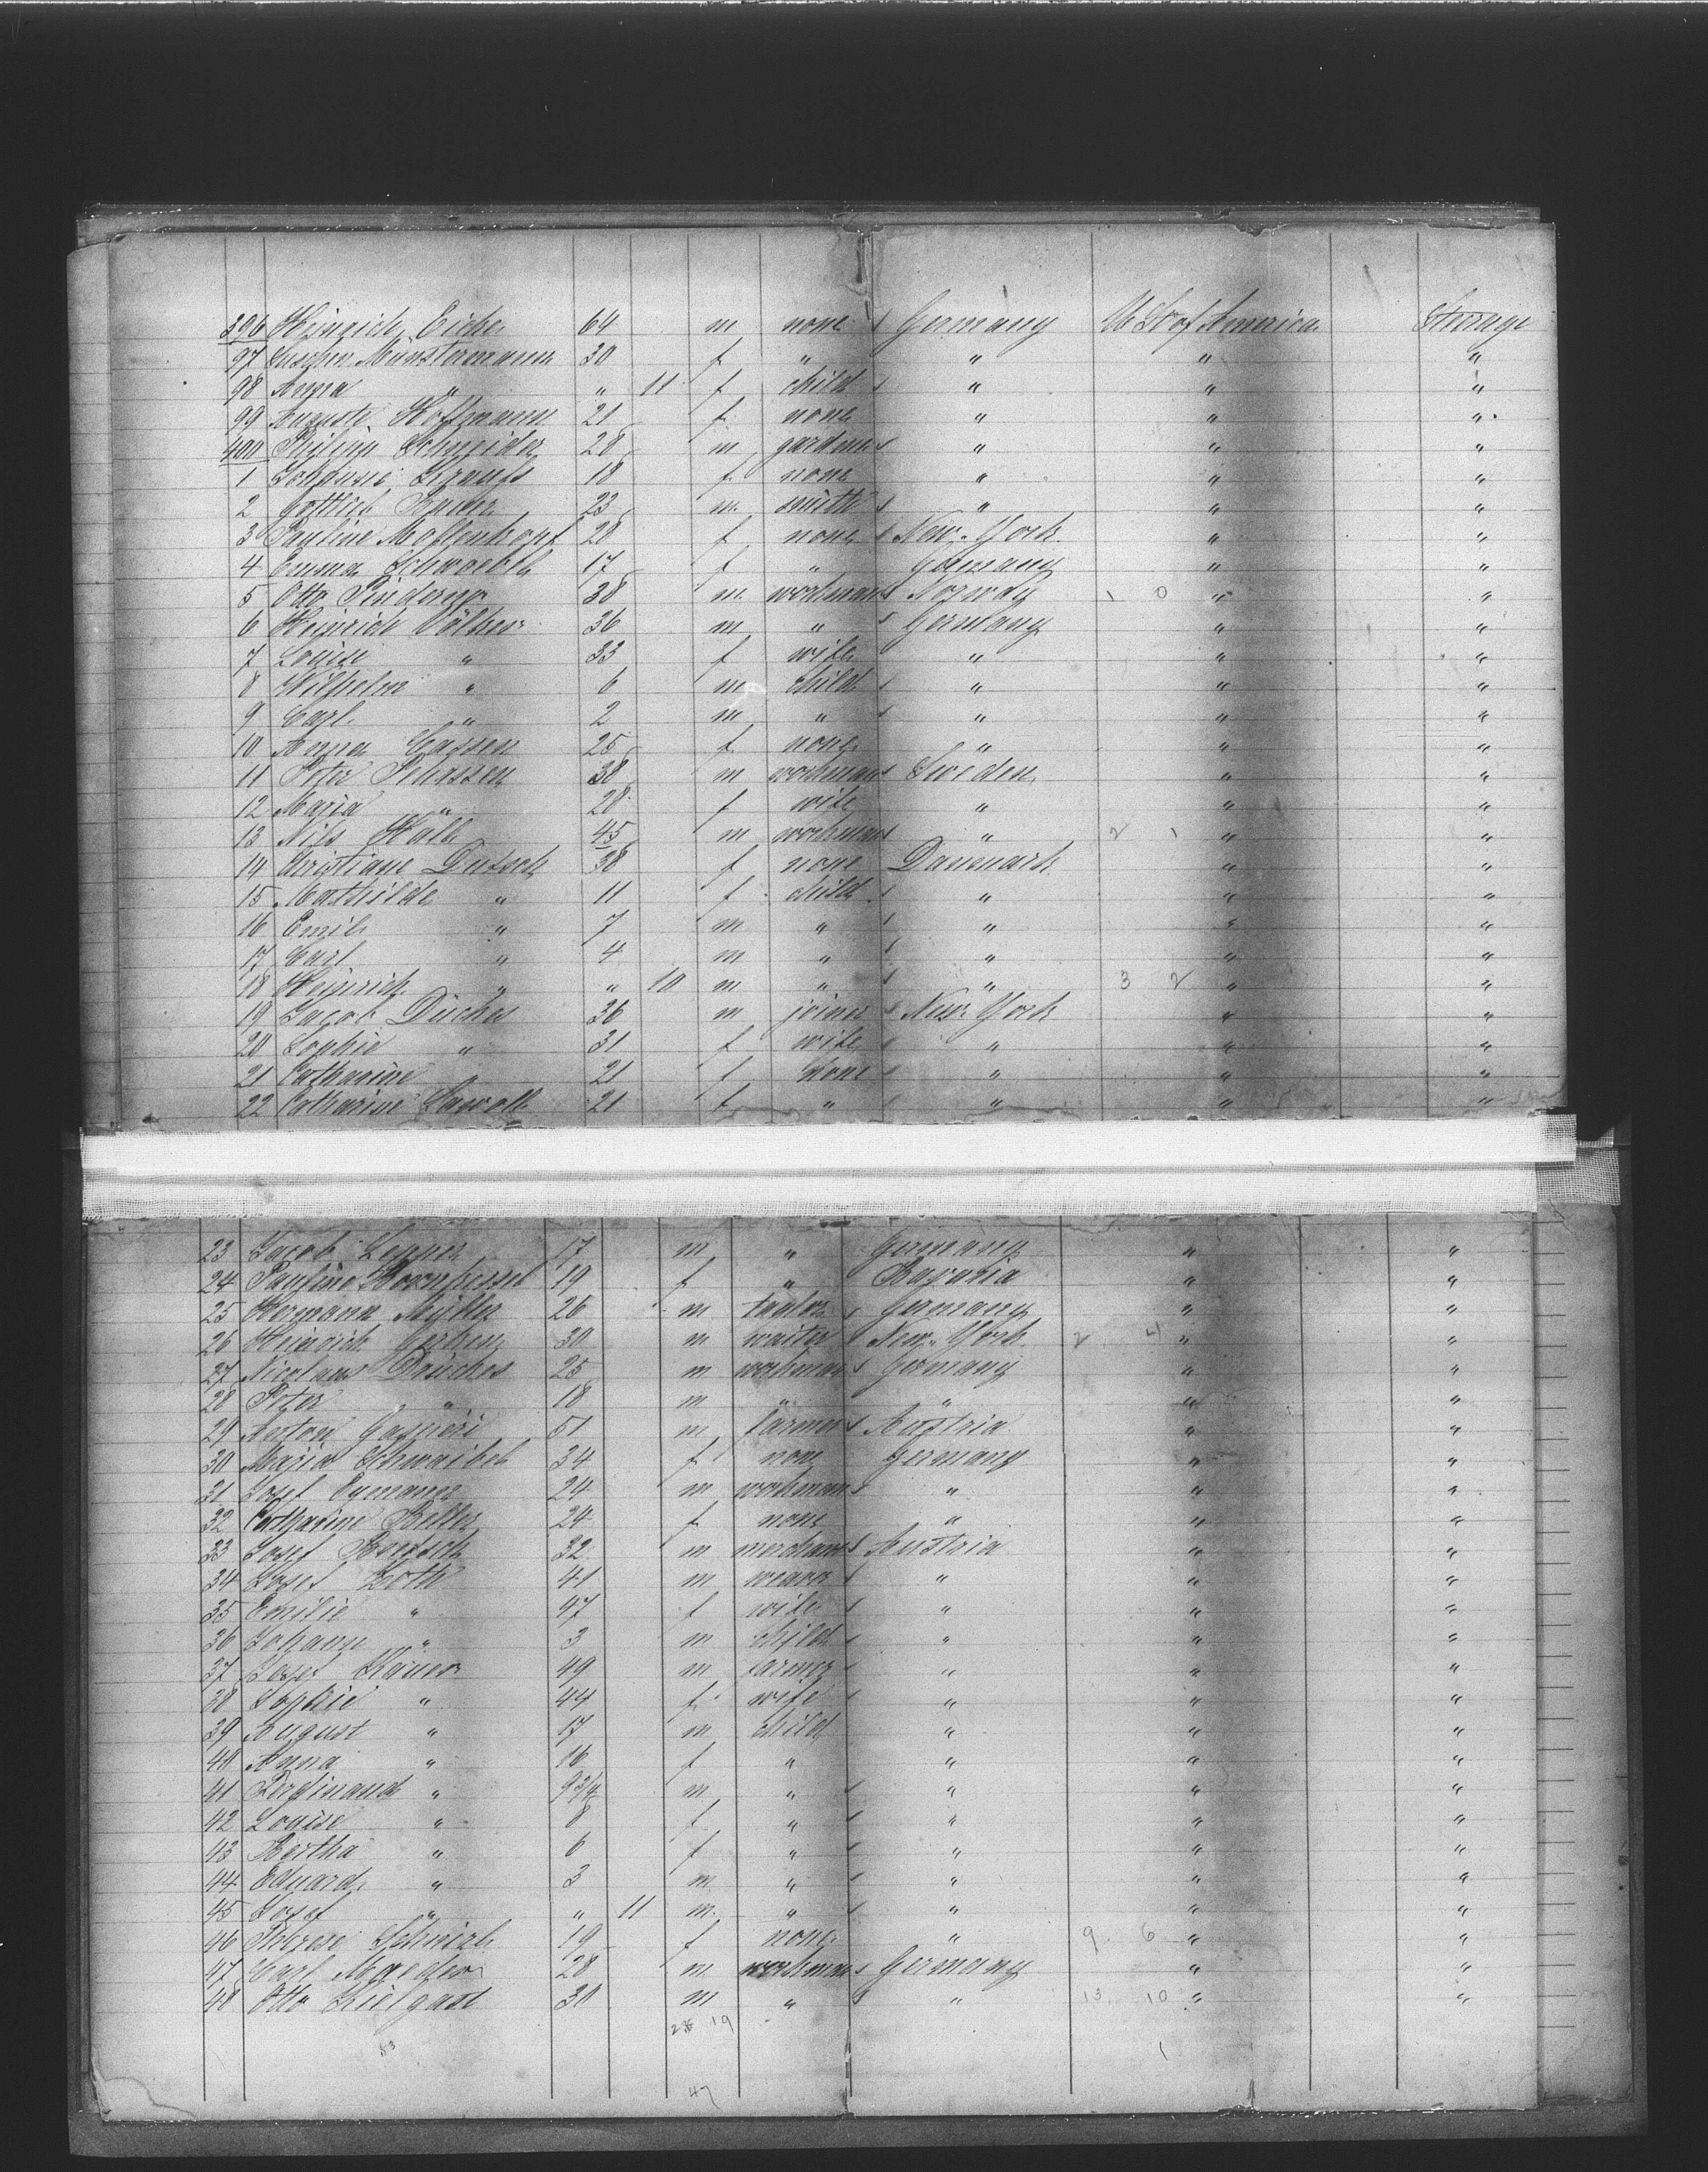 396 Heinrich Eicher 64 m none Germany U St of America Steerage
97 Münstermann 30 f " " " "
98 Anna " " 11 f child " " "
99 Auguste Hoffmann 21 f none " " "
400 Philipp Schneider 28 m gardener " " "
1 Johanne 18 f none " " "
2 Gottlieb 23 m smith " " "
3 Pauline Mollenkopf 28 f none New-York " "
4 Emma 17 f " Germany " "
5 Otto 38 m workman Norway 1 0 " "
6 Heinrich Völker 36 m " Germany " "
7 Louise " 33 f wife " " "
8 Wilhelm " 6 m child " " "
9 Carl " 2 m " " " "
10 Anna Cassen 25 f none " " "
11 Peter 38 m workman Sweden " "
12 Maria " 28 f wife " " "
13 Nils Hall 45 m workman " 2 1 " "
14 Christiane 38 f none Danmark " "
15 Mathilde " 11 f child " " "
16 Emil " 7 m " " " "
17 Carl " 4 m " " " "
18 Heinrich " " 10 m " " 3 2 " "
19 Jacob 36 m joiner New-York " "
20 Sophie " 31 f wife " " "
21 Catharine " 21 f none " " "
22 Catharine 21 f " " " "
23 Jacob 17 m " Germany " "
24 Pauline 19 f " Bavaria " "
25 Hermann Müller 26 m Germany " "
26 Heinrich Gerken 30 m waiter New-York 2 4 " "
27 Nicolaus 25 m workman Germany " "
28 Peter " 18 m " " " "
29 Anton Gasperi 51 m farmer Austria " "
30 Maria Schwaibel 34 f none Germany " "
31 Josef Eymann 24 m workman " " "
32 Catharine Keller 24 f none " " "
33 Josef 32 m merchant Austria " "
34 Josef 41 m weaver " " "
35 Emilie " 47 f wife " " "
36 Johann " 3 m child " " "
37 Josef 49 m farmer " " "
38 Sophie " 44 f wife " " "
39 August " 17 m child " " "
40 Anna " 16 f " " " "
41 Ferdinand " 9 3/4 m " " " "
42 Louise " 8 f " " " "
43 Bertha " 6 f " " " "
44 Eduard " 3 m " " " "
45 Josef " " 11 m " " " "
46 Therese 19 f none " 9 6 " "
47 Carl 28 m workman Germany " "
48 Otto 30 m " " 13 10 " "
19
53 1
47